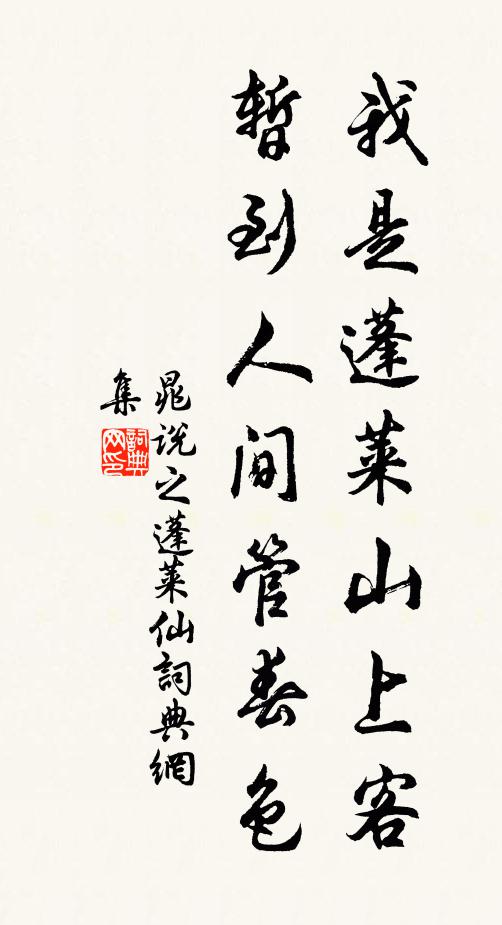 我是蓬莱山上客
暫到人间管春色
晁說之蓬莱仙詞典網
集
詞典
网印